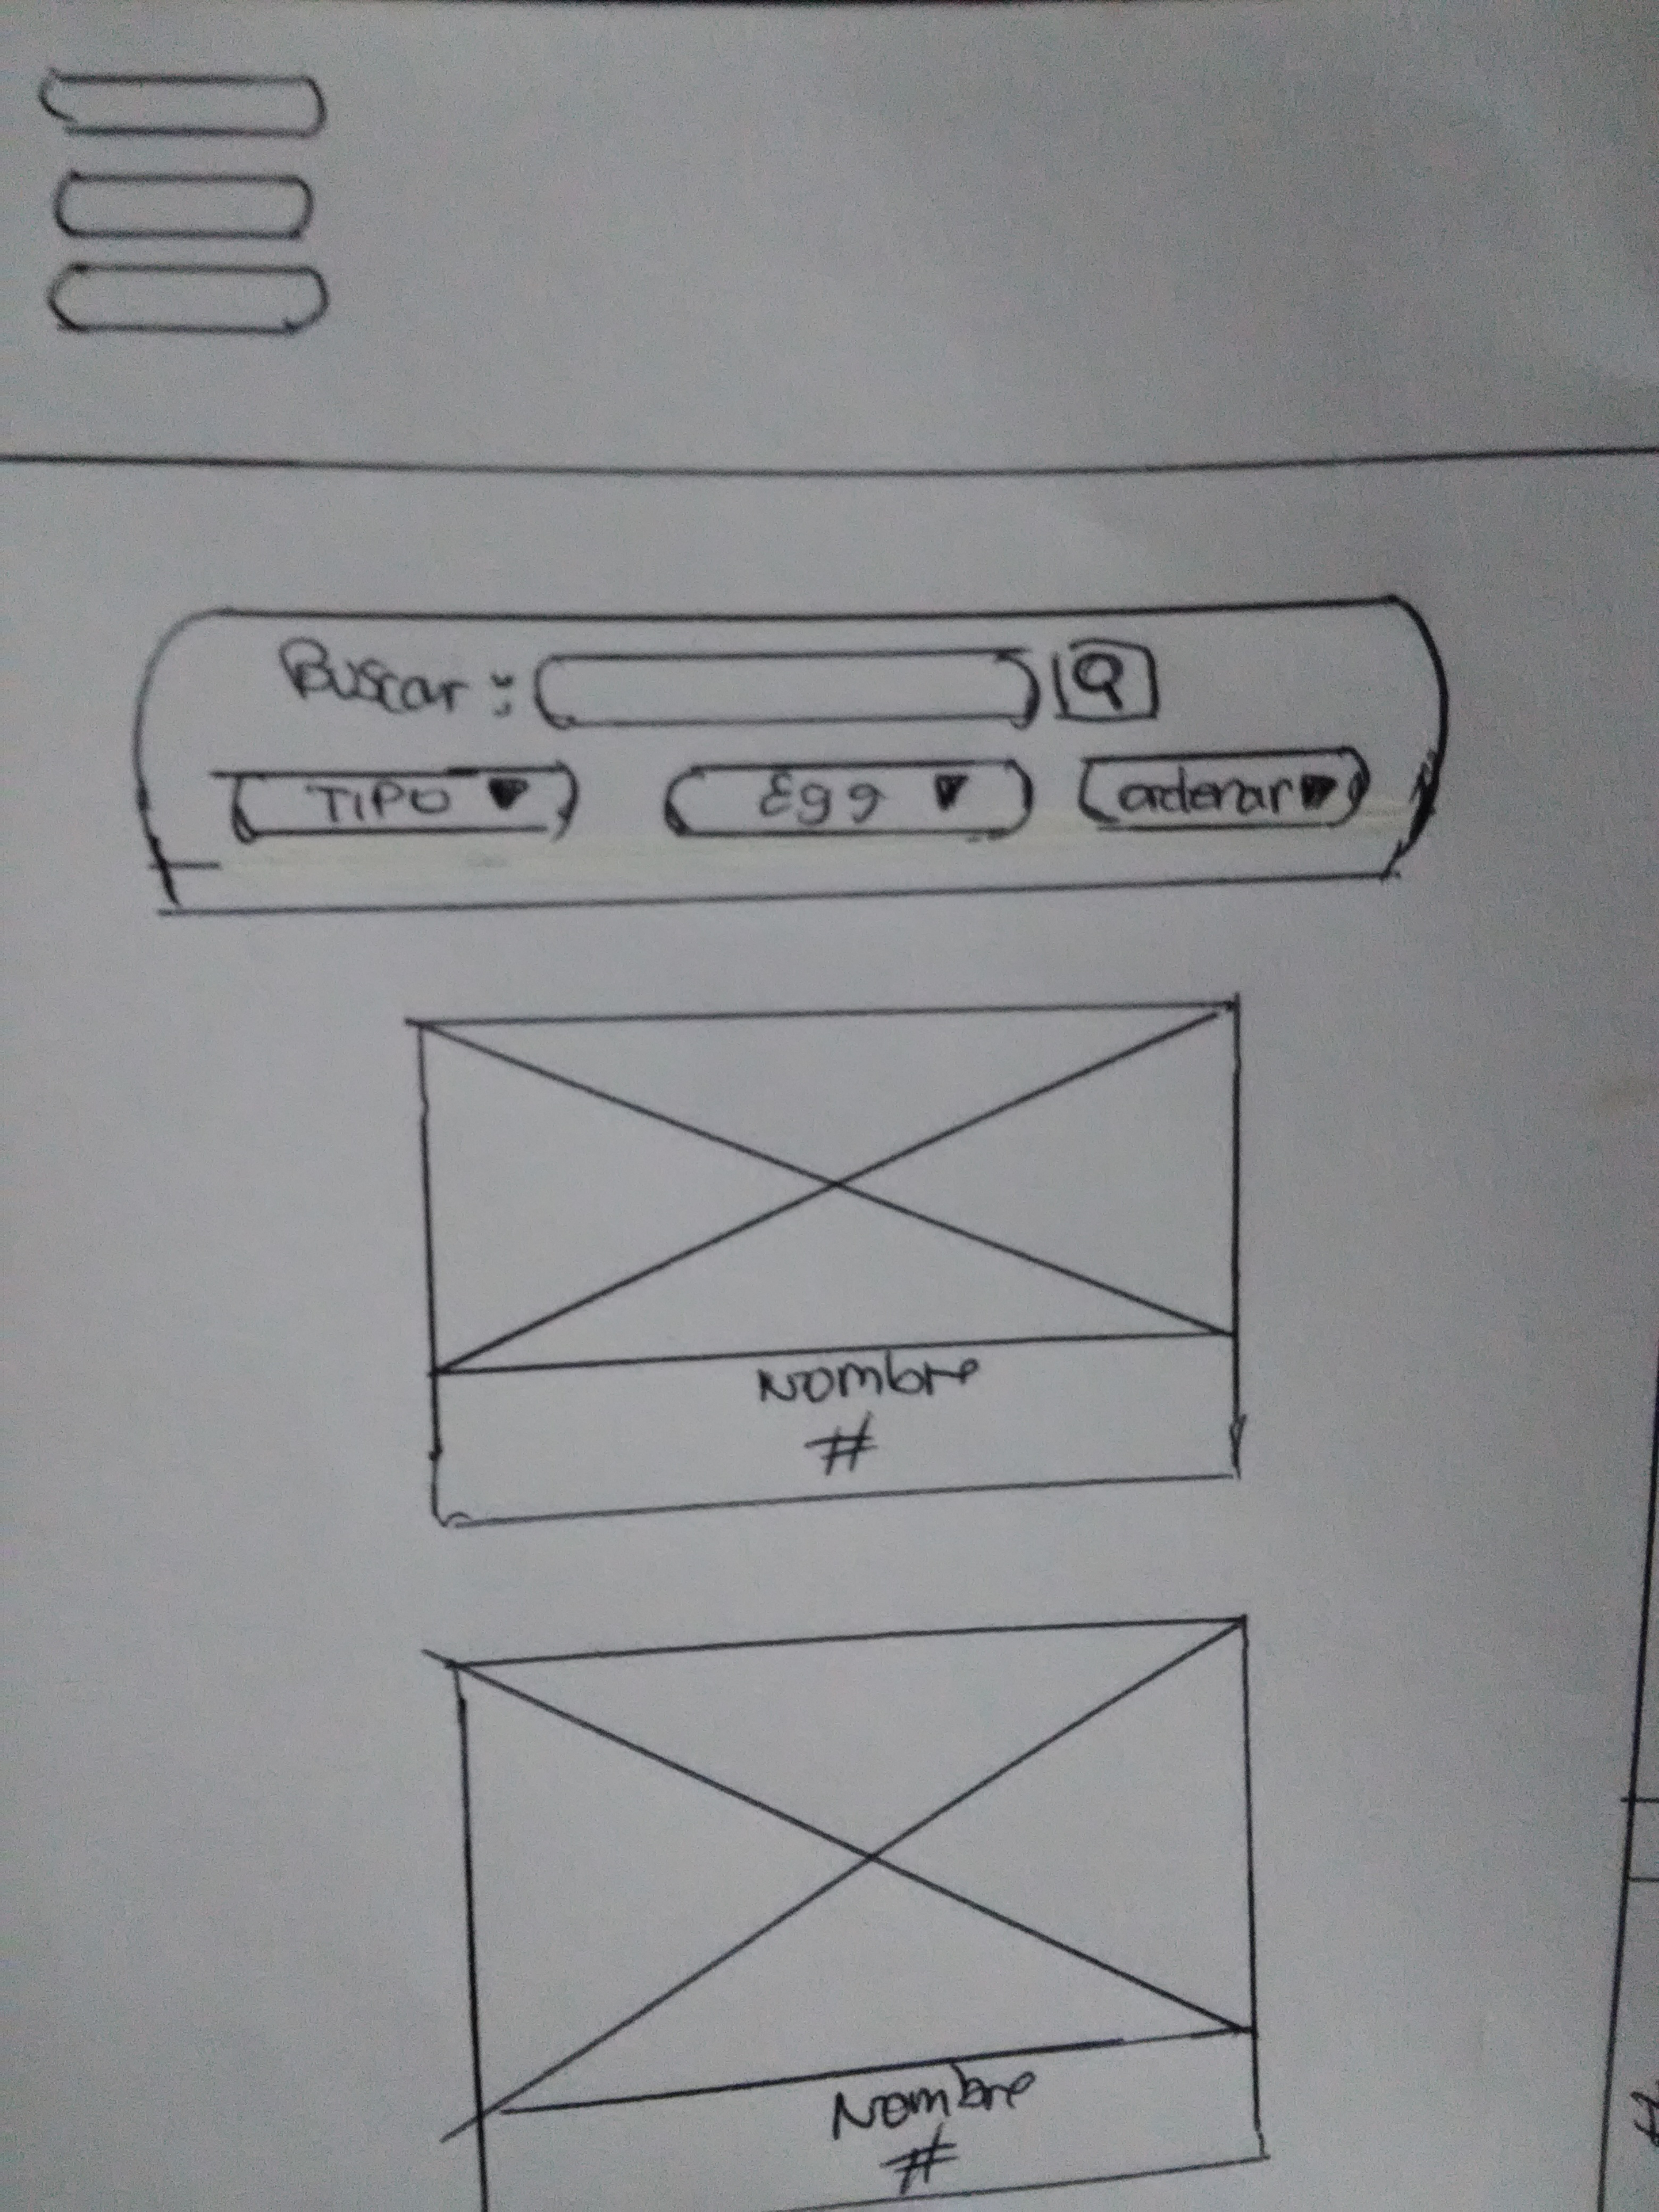 Buscar :
TIPO Egg ordenar
Nombre
#
Nombre
#